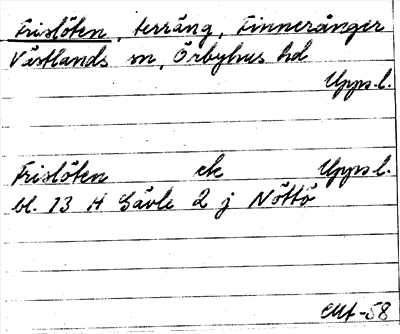 Frislöten, terräng, Finneränger
Västlands sn, Örbyhus hd
Upps.l.
Frislöten ek Upps.l.
bl. 13 H Gävle 2 j Nöttö
EMt-58